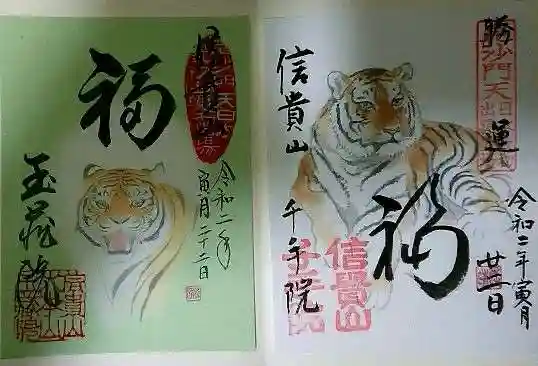 勝運
福
令和二年
寅月二十二日
玉蔵院
勝運
毘沙門天王
出
信貴山
福
千手院
信貴山
令和二年寅月
廿二日